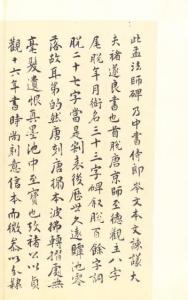 此孟法師碑乃中書侍郎岑文本文諫議大
夫褚遂良書也首脫唐京師至德觀主八字
尾脫年月銜名三十三字碑敘脫百餘字詞
脫二十七字當是剝裹後歷世久遠轉池零
落故耳第的然唐刻唐搨本波拂轉摺處無
毫髮遺恨真墨池中至寶也攷褚公以貞
觀十六年書時尚刻意信本而微參以分隸